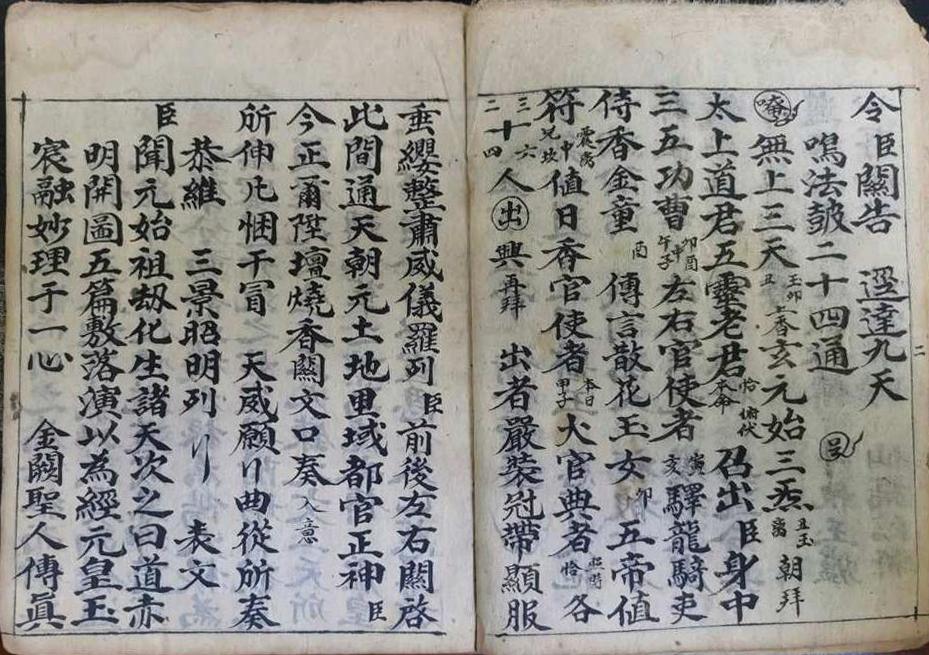 令臣關告 逕達九天
鳴法鼓二十四通
無上三天玄元始三炁 朝拜
太上道君五靈老君 召出臣身中
三五功曹左右官使者 驛龍騎吏
侍香金童 傳言散花玉女 五帝值
符 值日香官使者 火官典者 各
三十六
二十四人出 興再拜 出者嚴裝冠帶顯服
垂纓整肅威儀羅列臣前後左右關啓
此間通天朝元土地里域都官正神臣
今正爾陞壇燒香關文口奏入意
所伸凡悃干冒 天威願 曲從所奏
恭維 三景昭明列 表文
臣聞元始祖劫化生諸天次之曰道赤
明開圖五篇敷落演以為經元皇玉
宸融妙理于一心 金闕聖人傳眞